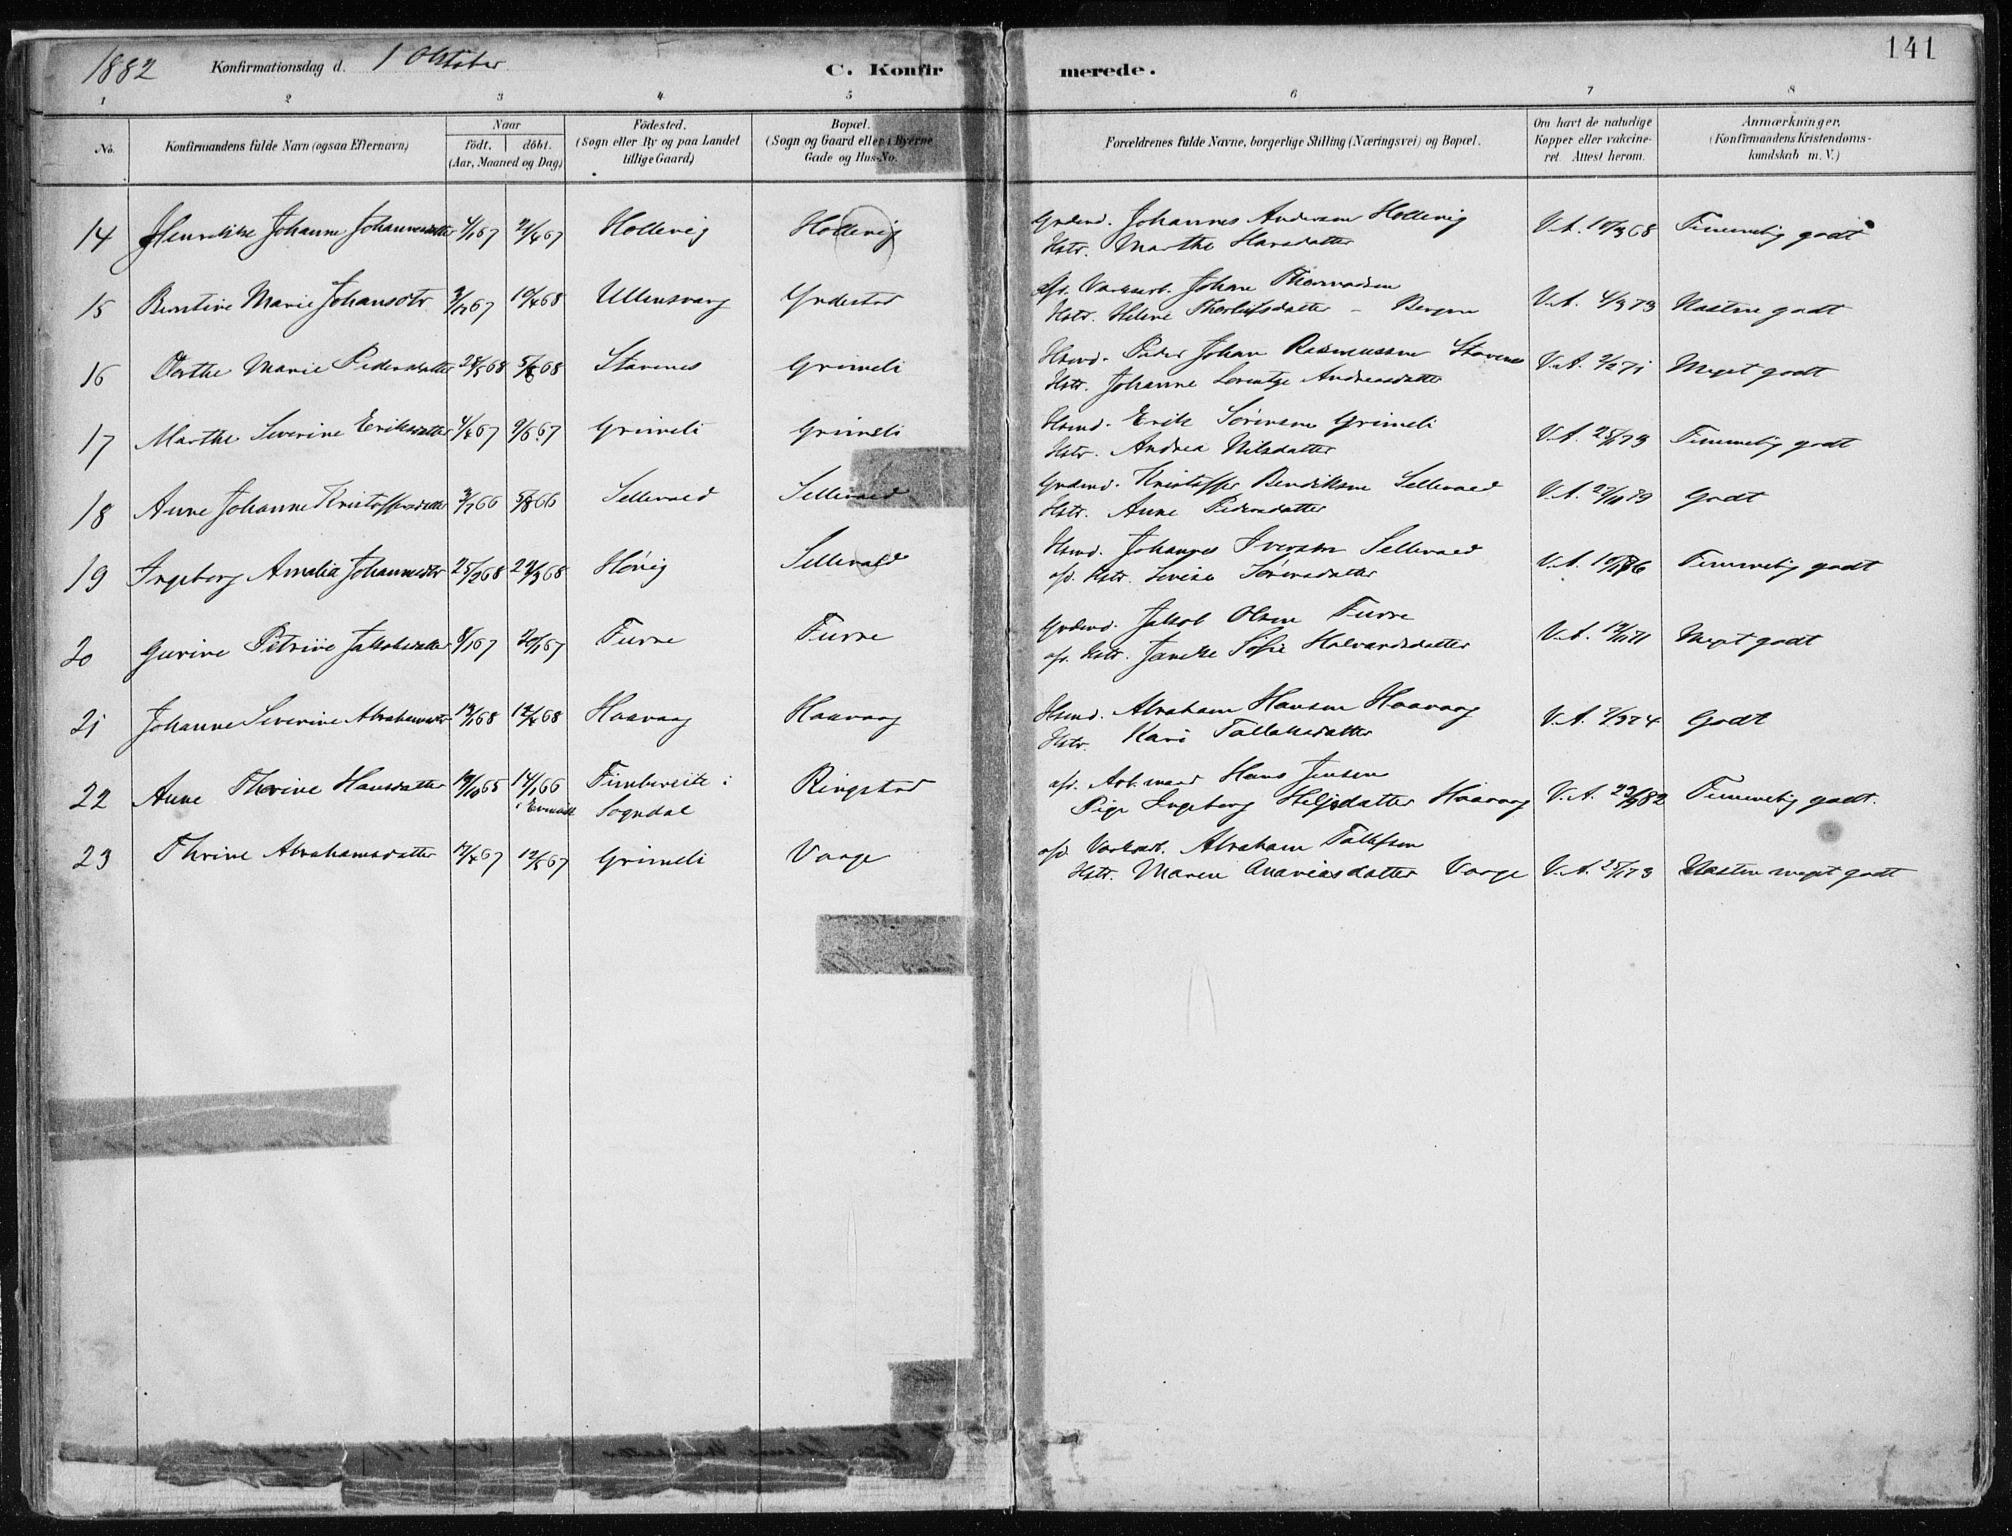 1882 Konfirmationsdag d. 1 Oktober C. Konfirmerede. 141
1 2 3 4 5 6 7 8
No. Konfirmandens fulde Navn (ogsaa Efternavn) Naar födt. döbt. (Aar, Maaned og Dag) Födested. (Sogn eller By og paa Landet tillige Gaard) Bopæl. (Sogn og Gaard eller i Byerne Gade og Hus-No. Forældrenes fulde Navne, borgerlige Stilling (Næringsvei) og Bopæl. Om havt de naturlige Kopper eller vakcineret. Attest herom. Anmærkninger. (Konfirmandens Kristendomskundskab m. V.)
14 Henrikke Johanne Johannesdatter 4/1 67 21/4 67 Hollevig Hollevig Grdmd. Johannes Andersen Hollevig
Hstr. Marthe Hansdatter V.A. 10/9 68 Temmelig godt
15 Bentine Marie Johansdtr 19/4 68 Ullensvang Yndestad Johan
Hstr. Helene Thorleifsdatter - Bergen V.A. 4/9 73 Næsten godt
16 Marie Pedersdatter 28/5 68 5/8 68 Stavenes Grimeli Hsmd. Peder Johan Rasmussen Stavenes
Hstr. Johanne Lorentze Andreasdatter V.A. 2/2 71 Meget godt
17 Marthe Severine Eriksdatter 4/4 67 9/5 67 Grimeli Grimeli Hsmd. Erik Sørensen Grimeli
Hstr. Andrea Nilsdatter V.A. 25/1 73 Temmelig godt
18 Anne Johanne Kristoffersdatter 3/7 66 5/8 66 Sellevold Sellevold Grdmd. Kristoffer Bendiksen Sellevold
Hstr. Anne Pedersdatter V.A. Godt
19 Ingeborg Amalia Johannesdtr 25/2 68 29/3 68 Høvig Sellevold Hsmd. Johannes Iversen Sellevold
afd. Hstr. Lovise Sørensdatter V.A. Temmelig godt
20 Gurine Petrine Jakobsdatter 8/1 67 20/1 67 Furre Furre Grdmd. Jakob Olsen Furre
afd. Hstr. Janikke Sofie Halvardsdatter V.A. 17/11 71 Meget godt
21 Johanne Severine Abrahamsdtr 14/1 68 12/4 68 Haavaag Haavaag Hsmd. Abraham Hansen Haavaag
Hstr. Kari Tollaksdatter V.A. 7/9 74 Godt
22 Anne Therine Hansdatter 19/10 65 14/1 66 Fimbereite i Ringstad afd. Arb.mand Hans Jensen
Sogndal Pige Ingeborg Haavaag V.A. 23/9 82 Temmelig godt.
23 Thrine Abrahamsdatter 17/4 67 12/5 67 Grimeli Vaage afd. Abraham
Hstr. Maren Ananiasdatter Vaage V.A. 25/1 73 Næsten meget godt